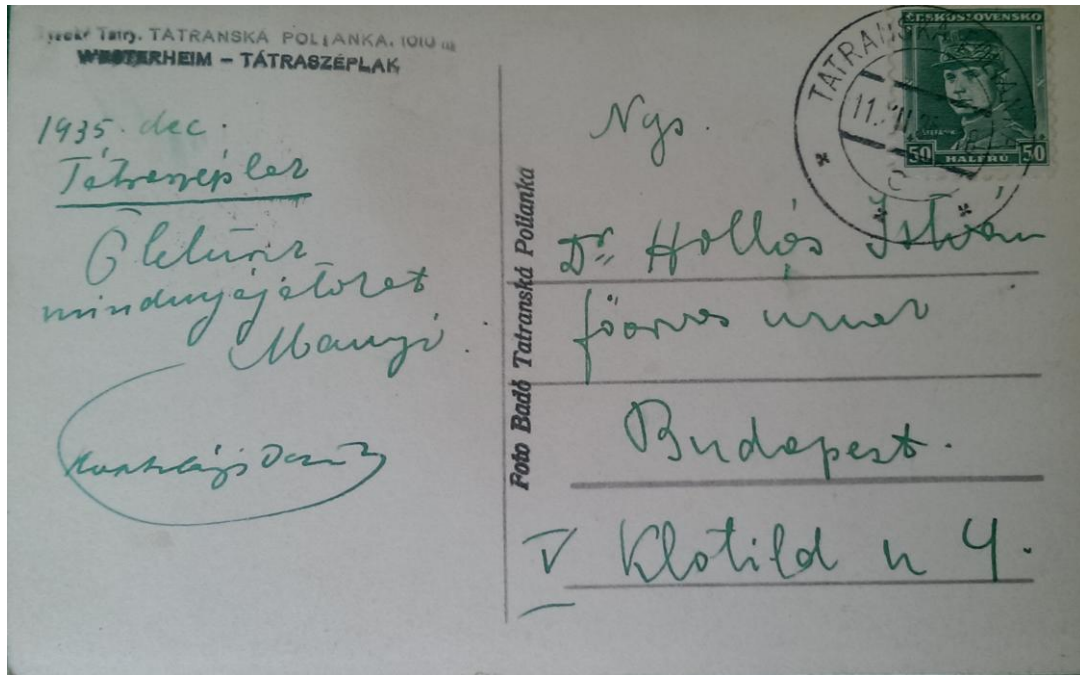 Vysoké Tatry. TATRANSKÁ POLIANKA. 1010 m
WESTERHEIM – TÁTRASZÉPLAK
1935. dec.
Tátraszéplak
Ölelünk
mindnyájatokat
Manyi
Foto Badó Tatranská Polianka
ČESKOSLOVENSKO
50 HALÉŘŮ 50
TATRANSKÁ
Ngs.
Dr. Hollós István
főorvos urnak
Budapest.
V Klotild u 4.